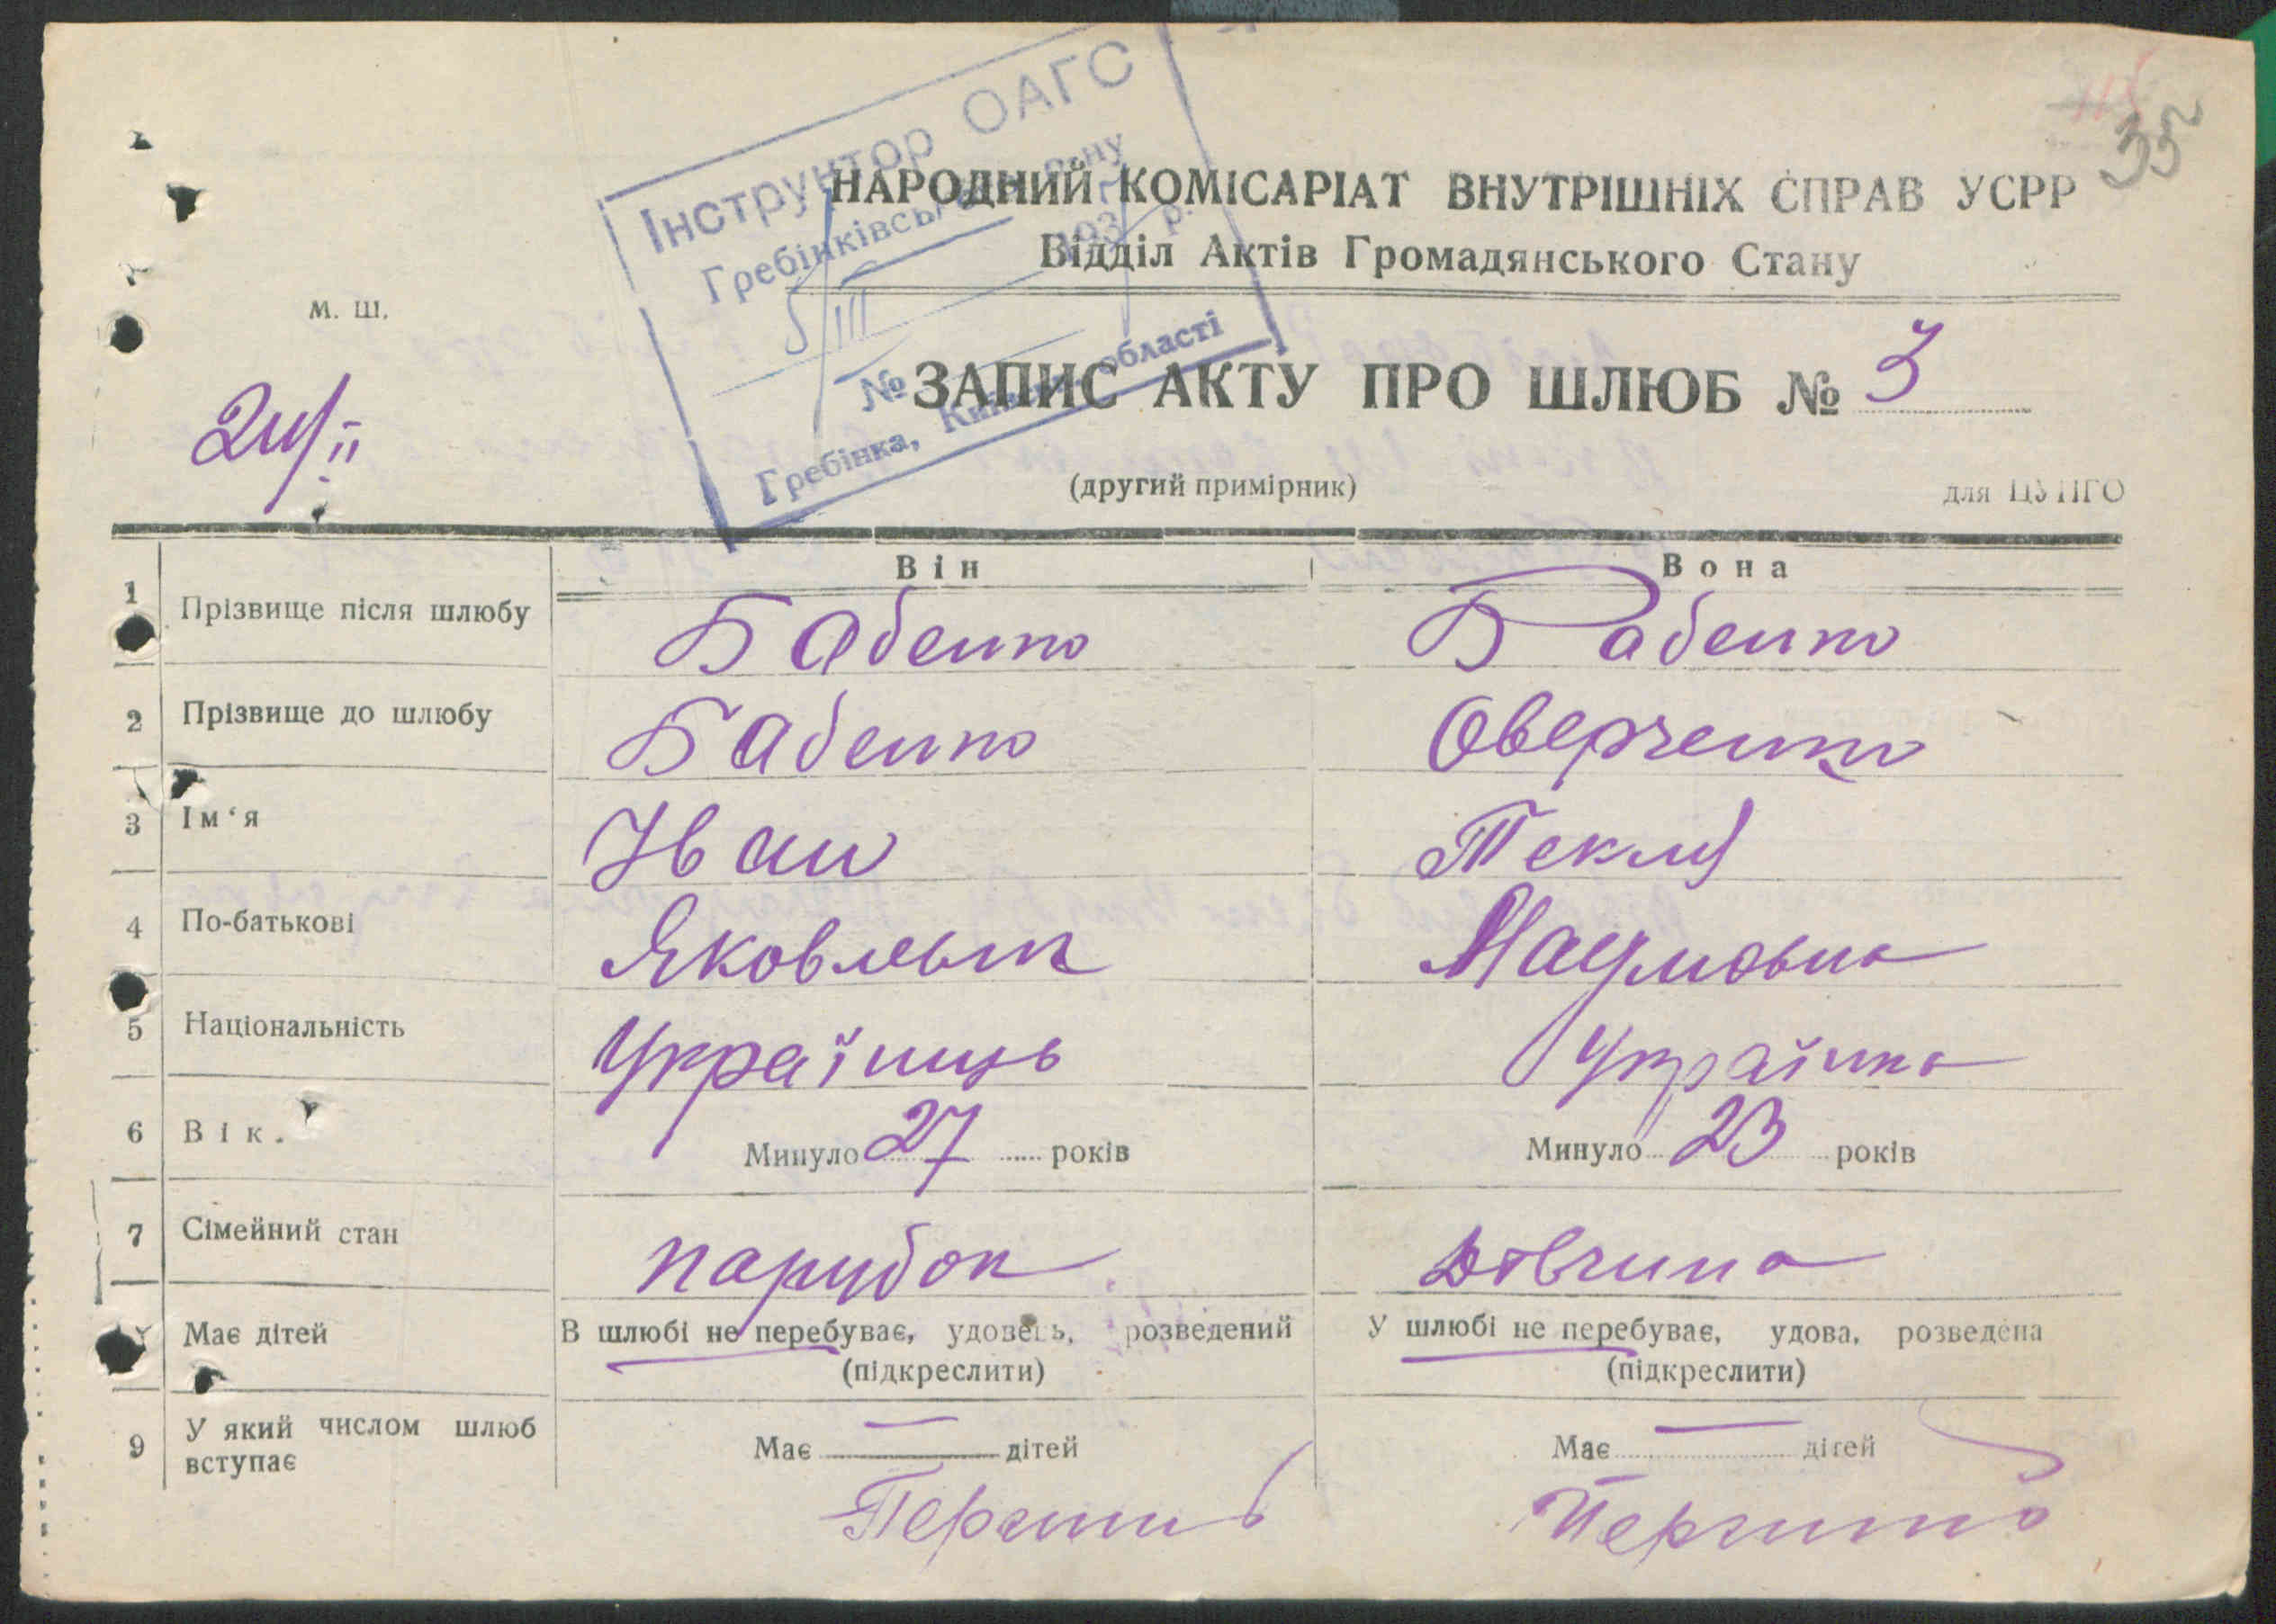 35
Інструктор ОАГС
Гребінківськ
5/III 193 р.
№
Гребінка, Київськ. області
НАРОДНИЙ КОМІСАРІАТ ВНУТРІШНІХ СПРАВ УСРР
Відділ Актів Громадянського Стану
М. Ш.
24/II
ЗАПИС АКТУ ПРО ШЛЮБ № 3
(другий примірник) для ЦУНГО
Він Вона
1 Прізвище після шлюбу Бабенко Бабенко
2 Прізвище до шлюбу Бабенко Оверченко
3 Ім‘я Іван Текля
4 По-батькові Яковлевич Наумовна
5 Національність Українць Українка
6 Вік. Минуло 27 років Минуло 23 років
7 Сімейний стан парубок дівчина
Має дітей В шлюбі не перебуває, удовець, розведений У шлюбі не перебуває, удова, розведена
(підкреслити) (підкреслити)
9 У який числом шлюб Має — дітей Має — дітей
вступає
Перший Першиб